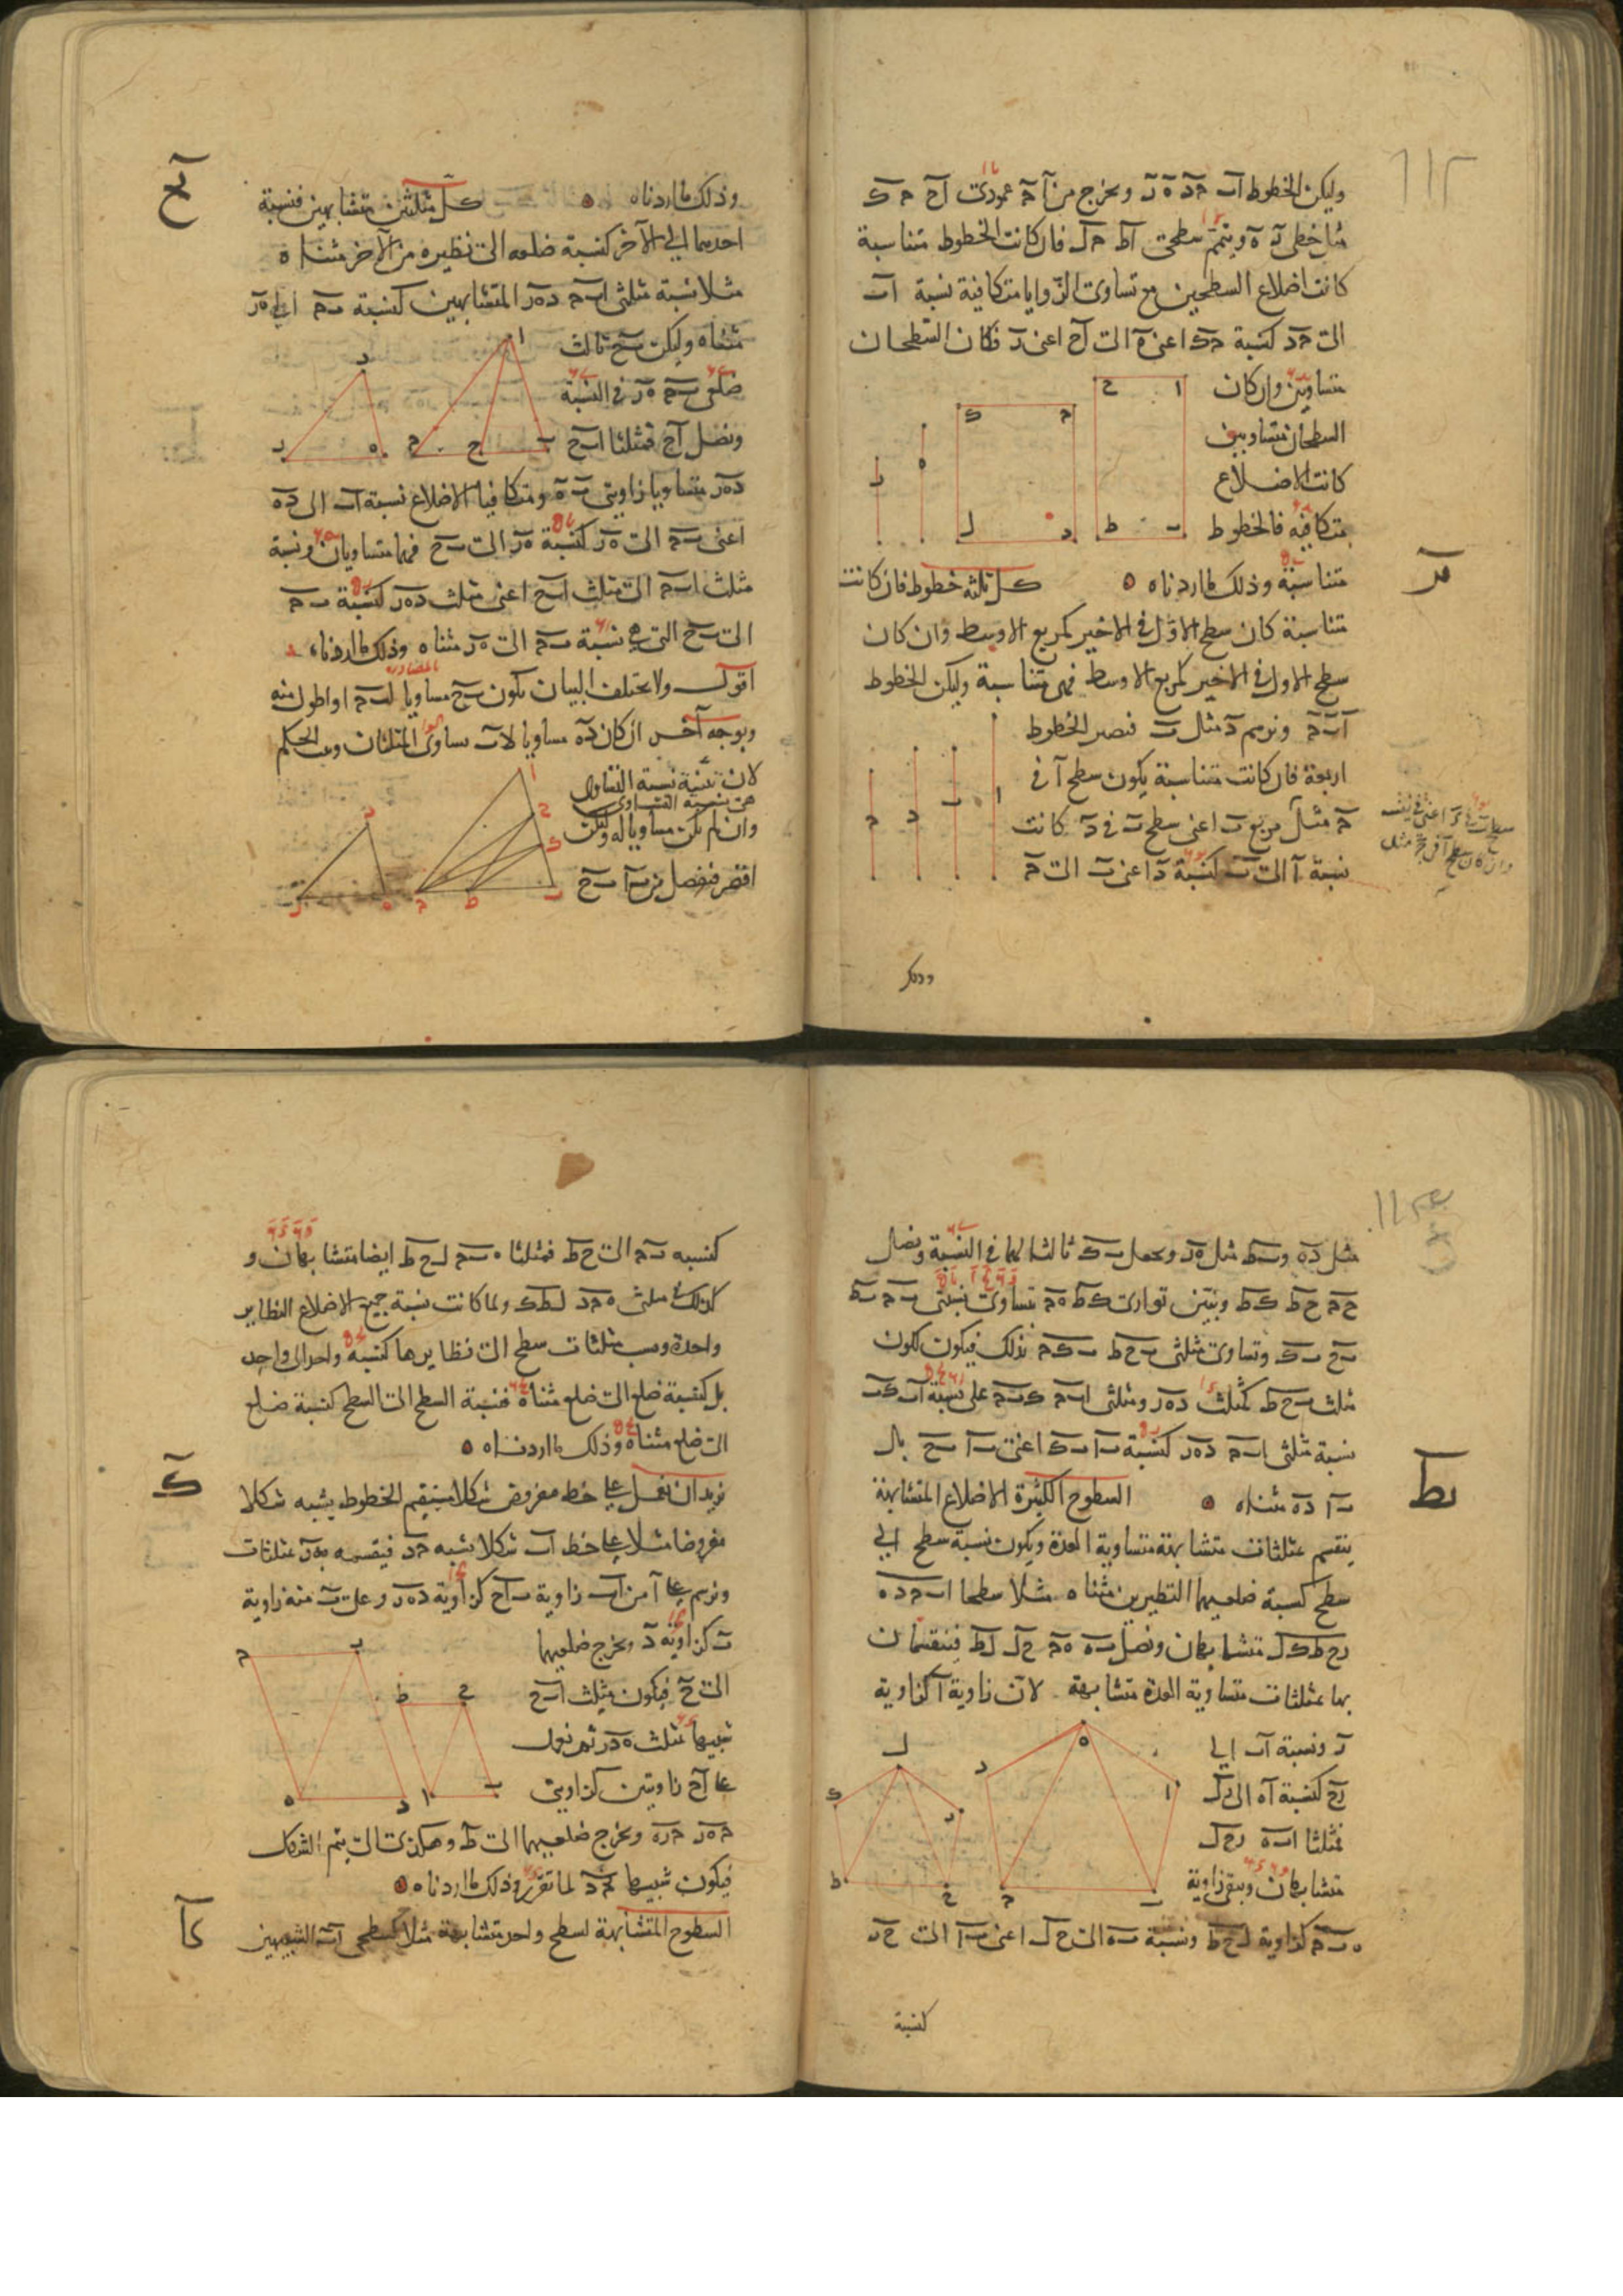 ١١٢
وليكن الخطوط اب حد ه ر ونخرج من ا ح عمودى اح حك
مثل خطى ر ه ونتمم سطحى اط حل فان كانت الخطوط متناسبة
كانت اضلاع السطحين مع تساوى الزوايا متكافية نسبة اب
الى حد كنسبة حك اعنى ه الى اح اعنى ر فكان السطحان
متساويين وان كان
السطحان متساويين
كانت الاضلاع
متكافيه فالخطوط
متناسبة وذلك ما اردناه ه كل ثلثة خطوط فان كانت
يز
متناسبة كان سطح الاول فى الاخير كمربع الاوسط وان كان
سطح الاول فى الاخير كمربع الاوسط فهى متناسبة وليكن الخطوط
ا ب ح ونرسم د مثل ب فتصير الخطوط
اربعة فان كانت متناسبة يكون سطح ا فى
ح مثل مربع ب اعنى سطح ب فى د كانت
نسبة ا الى ب كنسبة د اعنى ب الى ح
وذلك
وذلك ما اردناه ه كل مثلثين متشابهين فنسبة
يح
احدهما الى الآخر كنسبة ضلعه الى نظيره من الآخر مثناه
مثلا نسبة مثلثى ابح دهر المتشابهين كنسبة بح الى هر
مثناه وليكن بح ثالث
ضلعى بح هر فى النسبة
ونصل اح فمثلثا ابح
دهر متساويا زاويتى ب ه ومتكافيا الاضلاع نسبة اب الى ده
اعنى بح الى هر كنسبة هر الى بح فهما متساويان ونسبة
مثلث ابح الى مثلث ابح اعنى مثلث دهر كنسبة بح
الى بح التى هى نسبة بح الى هر مثناه وذلك ما اردناه
اقول ولا يختلف البيان بكون بح مساويا لبح او اطول منه
وبوجه آخر ان كان ده مساويا لاب تساوى المثلثان وثبت الحكم
لان تثنية نسبة التساوى
هى نسبة التساوى
وان لم يكن مساويا له وليكن
اقصر فنفصل من با بح
مثل ده وبط مثل هر ونجعل بك ثالثا لهما فى النسبة ونصل
حح حط كط ونبين توازى كط هح بتساوى نسبتى بح بط
بح بك وتساوى مثلثى بحط بكح بذلك فيكون لكون
مثلث بحط كمثلث دهر ومثلثى ابح كبح على نسبة اب كب
نسبة مثلثى ابح دهر كنسبة با بك اعنى با بح بل
با ده مثناه ه السطوح الكثيرة الاضلاع المتشابهة
يط
ينقسم بمثلثات متشابهة متساوية العدة ويكون نسبة سطح الى
سطح كنسبة ضلعيهما النظيرين مثناه مثلا سطحا ابحده
رحطكل متشابهان ونصل به هح حل لط فينقسمان
بها بمثلثات متساوية العدة متشابهة لان زاوية ا كزاوية
ر ونسبة اب الى
رح كنسبة اه الى رل
فمثلثا ابه رحل
متشابهان وبقى زاوية
هبح كزاوية لحط ونسبة به الى حل اعنى با الى حر
كنسبة
كنسبه بح الى حط فمثلثا هبح لحط ايضا متشابهان و
كذلك مثلثى هحد لطك ولما كانت نسبة جميع الاضلاع النظاير
واحدة ونسب مثلثات سطح الى نظايرها كنسبة واحد الى واحد
بل كنسبة ضلع الى ضلع مثناة فنسبة السطح الى السطح كنسبة ضلع
الى ضلع مثناة وذلك ما اردناه ه
ك
نريد ان نعمل على خط مفروض شكلا مستقيم الخطوط يشبه شكلا
مفروضا مثلا على خط اب شكلا يشبه حد فيقسمه بهر بمثلثات
ونرسم على ا من اب زاوية باح كزاوية دهر وعلى ب منه زاوية
ب كزاوية د ونخرج ضلعيهما
الى ح فيكون مثلث ابح
شبيها بمثلث هدر ثم نعمل
على اح زاويتين كزاويتى
حهر حره ونخرج ضلعيهما الى ط وهكذى الى ان يتم الشكل
فيكون شبيها بحد لما تقرر وذلك ما اردناه ه
كا
السطوح المتشابهة لسطح واحد متشابهة مثلا كسطحى اب الشبيهين